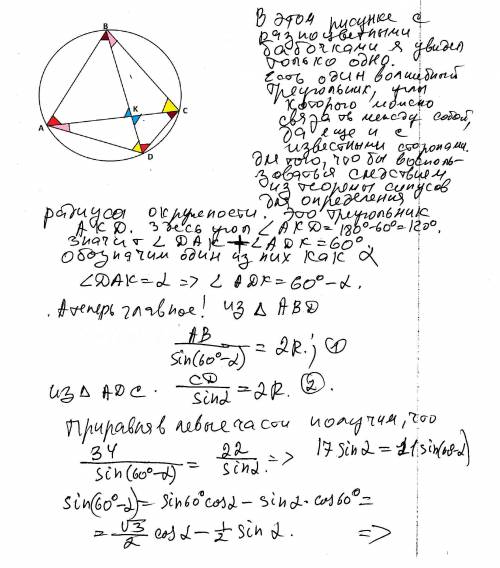 B
K
C
A
D
В этом рисунке с
разноцветными
бабочками я увидел
только одно.
Есть один волшебный
треугольник, углы
которого можно
связать между собой,
да ещё и с
известными сторонами.
Для того, чтобы восполь-
зоваться следствием
из теоремы синусов
для определения
радиуса окружности. Это треугольник
AKD. Здесь угол ∠AKD = 180°-60° = 120°.
Значит ∠DAK + ∠ADK = 60°.
Обозначим один из них как α
∠DAK = α => ∠ADK = 60° - α.
А теперь главное! Из △ ABD
AB / sin(60°-α) = 2R; ①
из △ ADC. CD / sin α = 2R. ②.
Приравняв левые части получим, что
34 / sin(60°-α) = 22 / sin α => 17 sin α = 11 sin(60-α)
sin(60°-α) = sin60°cosα - sinα·cos60° =
= √3/2 cos α - 1/2 sin α. =>